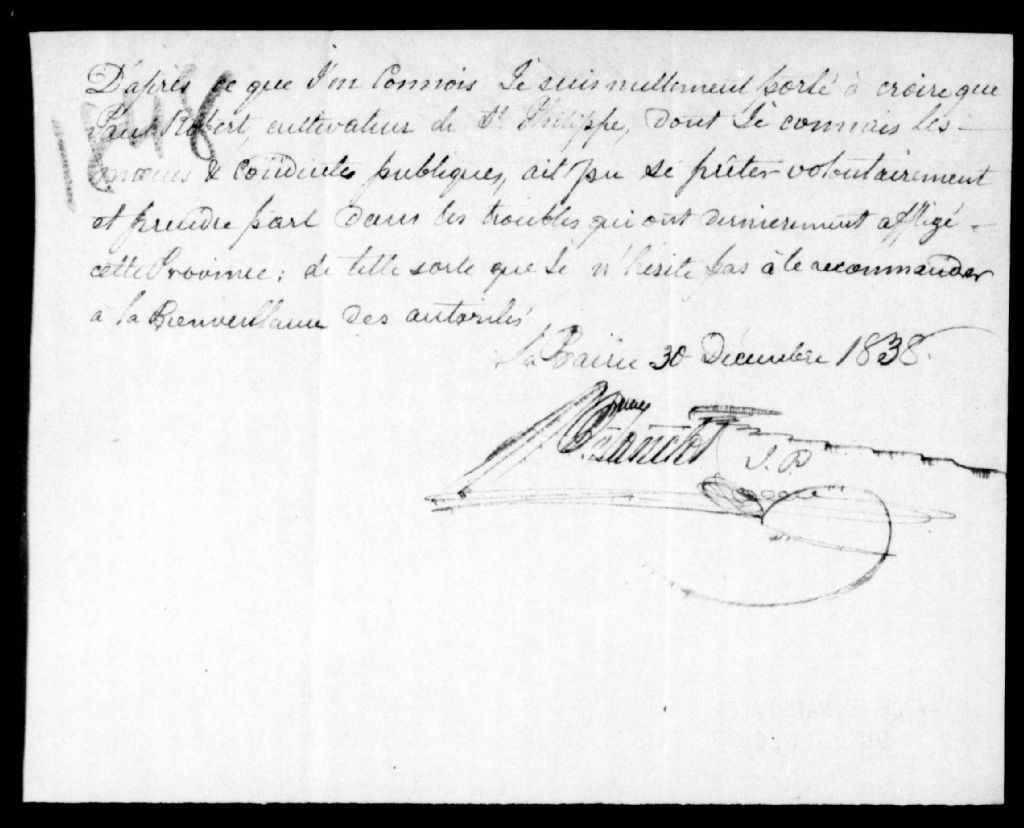 D'après ce que j'en Connois Je suis nullement porté à croire que
Paul Robert, cultivateur de St Philippe, dont Je connais les
moeurs & Conduites publiques, ait pu se prêter volontairement
et prendre part dans les troubles qui ont dernierement affligé
cette Province; de telle sorte que Je n'hésite pas à le recommander
à la Bienveillance des autorités
La Prairie 30 Décembre 1838.
Lanctot J. P.
1848